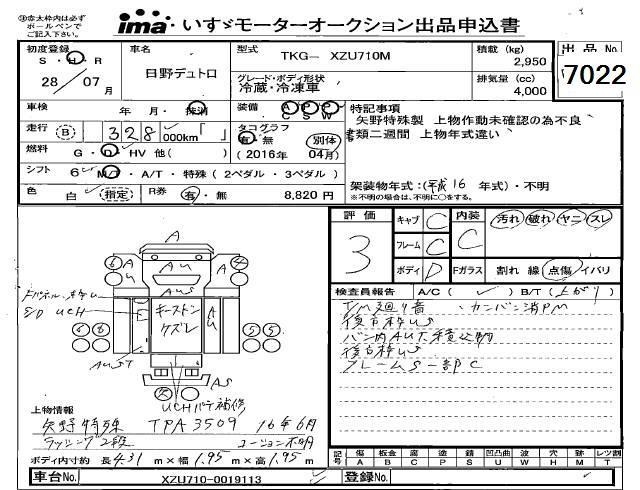 ㊟赤太枠内は必ず
ボールペンで
ご記入下さい。
ima いすゞモーターオークション出品申込書
初度登録
S・H・R
28 / 07月
車名
日野デュトロ
型式
TKG- XZU710M
積載 (kg)
2,950
グレード・ボディ形状
冷蔵・冷凍車
排気量 (cc)
4,000
出品No
7022
車検 年 月・抹消
装備 A P P
C S W
走行 B 328,000km「 」
タコグラフ
有・無 別体
(2016年 04月)
燃料 G・D・HV 他( )
シフト 6 MT・A/T・特殊(2ペダル・3ペダル)
色 白 指定 R券 有・無 8,820円
特記事項
矢野特殊製 上物作動未確認の為不良
書類二週間 上物年式違い
架装物年式:(平成16 年式)・不明
※不明の場合は、不明に○をする。
評価
3
キャブ C
フレーム C
ボディ D
内装 C
汚れ・破れ・ヤニ・スレ
Fガラス 割れ 線 点傷・イバリ
検査員報告 A/C( ✓ ) B/T(上がり)
T/M廻り音 カンバン消PM
後方枠US
バン内AUT 積込物
後方枠US
フレームS一部PC
A
AU
AUS
キーストン
クズレ
S/D UCH
AUST
AU
AS
UCHパテ補修
上物情報
矢野特殊 TPA3509 16年6月
ラッシング2段 コーション不明
ボディ内寸約 長4.31 m×幅1.95 m×高1.95 m
記号 傷 板金 腐 塗 錆 凹凸曲 波 穴 跡 レツ割
A B C P S U W H M T
車台No. XZU710-0019113 登録No.